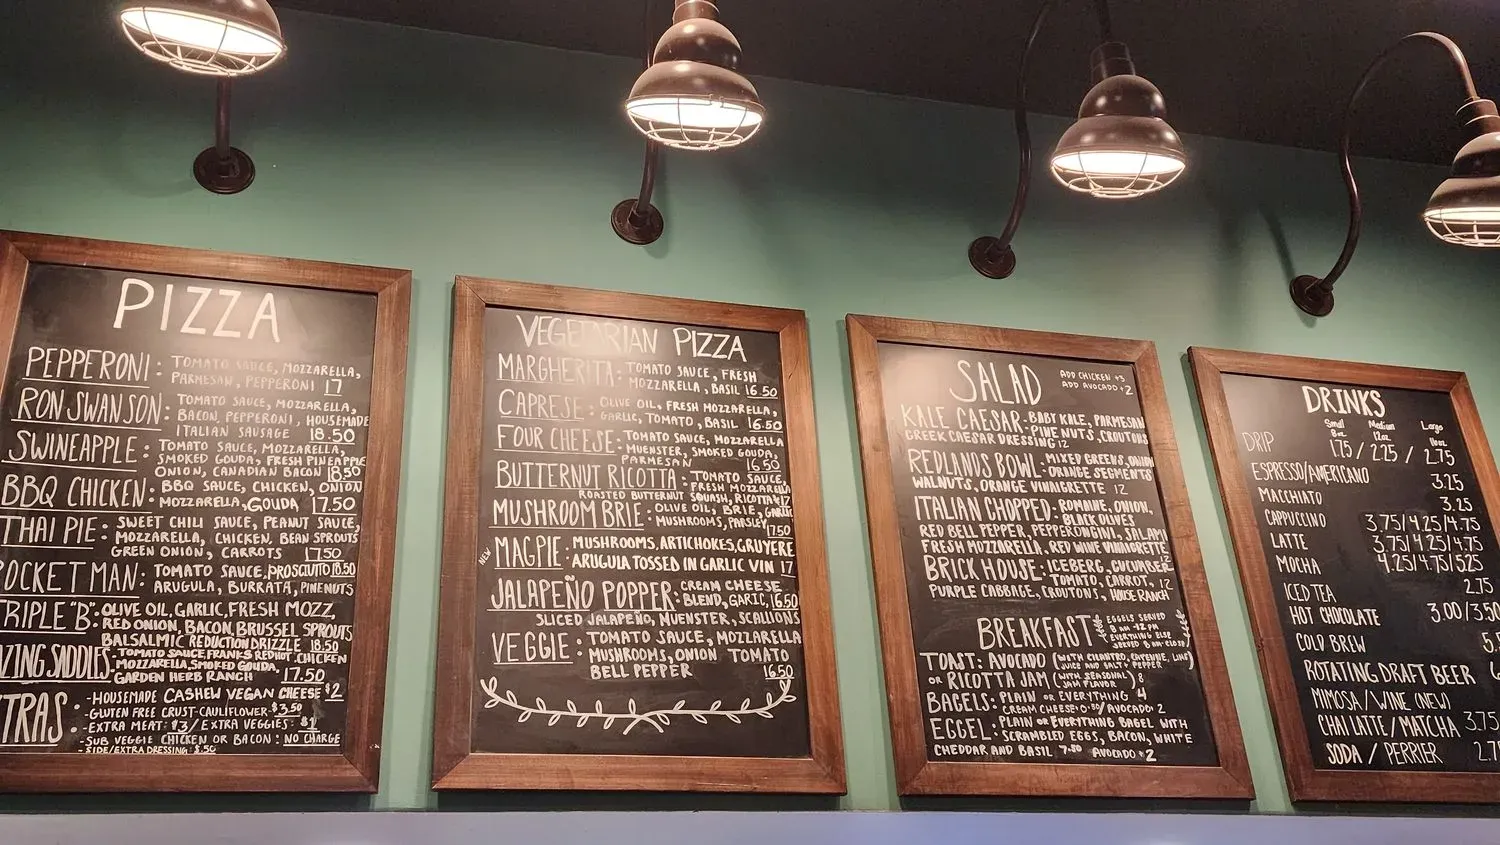 PIZZA
PEPPERONI: TOMATO SAUCE, MOZZARELLA,
PARMESAN, PEPPERONI 17
RON SWANSON: TOMATO SAUCE, MOZZARELLA,
BACON, PEPPERONI, HOUSEMADE
ITALIAN SAUSAGE 18.50
SWINEAPPLE: TOMATO SAUCE, MOZZARELLA,
SMOKED GOUDA, FRESH PINEAPPLE
ONION, CANADIAN BACON 18.50
BBQ CHICKEN: BBQ SAUCE, CHICKEN, ONION
MOZZARELLA, GOUDA 17.50
THAI PIE: SWEET CHILI SAUCE, PEANUT SAUCE,
MOZZARELLA, CHICKEN, BEAN SPROUTS
GREEN ONION, CARROTS 17.50
POCKET MAN: TOMATO SAUCE, PROSCIUTTO 18.50
ARUGULA, BURRATA, PINENUTS
TRIPLE "B": OLIVE OIL, GARLIC, FRESH MOZZ,
RED ONION, BACON, BRUSSEL SPROUTS
BALSALMIC REDUCTION DRIZZLE 18.50
AZING SADDLES: TOMATO SAUCE, FRANKS REDHOT, CHICKEN
MOZZARELLA, SMOKED GOUDA,
GARDEN HERB RANCH 17.50
TRAS: -HOUSEMADE CASHEW VEGAN CHEESE $2
-GLUTEN FREE CRUST-CAULIFLOWER $3.50
-EXTRA MEAT: $3/EXTRA VEGGIES: $1
-SUB VEGGIE CHICKEN OR BACON: NO CHARGE
-SIDE/EXTRA DRESSING $.50
VEGETARIAN PIZZA
MARGHERITA: TOMATO SAUCE, FRESH
MOZZARELLA, BASIL 16.50
CAPRESE: OLIVE OIL, FRESH MOZZARELLA,
GARLIC, TOMATO, BASIL 16.50
FOUR CHEESE: TOMATO SAUCE, MOZZARELLA
MUENSTER, SMOKED GOUDA,
PARMESAN 16.50
BUTTERNUT RICOTTA: TOMATO SAUCE,
FRESH MOZZARELLA
ROASTED BUTTERNUT SQUASH, RICOTTA 17
MUSHROOM BRIE: OLIVE OIL, BRIE, GARLIC
MUSHROOMS, PARSLEY 17.50
NEW MAGPIE: MUSHROOMS, ARTICHOKES, GRUYERE
ARUGULA TOSSED IN GARLIC VIN 17
JALAPEÑO POPPER: CREAM CHEESE
BLEND, GARLIC, 16.50
SLICED JALAPEÑO, MUENSTER, SCALLIONS
VEGGIE: TOMATO SAUCE, MOZZARELLA
MUSHROOMS, ONION TOMATO
BELL PEPPER 16.50
SALAD
ADD CHICKEN +3
ADD AVOCADO +2
KALE CAESAR: BABY KALE, PARMESAN
GREEK CAESAR DRESSING PINE NUTS, CROUTONS 12
REDLANDS BOWL: MIXED GREENS, ONION
ORANGE SEGMENTS
WALNUTS, ORANGE VINAIGRETTE 12
ITALIAN CHOPPED: ROMAINE, ONION,
BLACK OLIVES
RED BELL PEPPER, PEPPERONCINI, SALAMI
FRESH MOZZARELLA, RED WINE VINAIGRETTE
12
BRICK HOUSE: ICEBERG, CUCUMBER
TOMATO, CARROT, 12
PURPLE CABBAGE, CROUTONS, HOUSE RANCH
BREAKFAST
EGGELS SERVED
8 AM - 12 PM
EVERYTHING ELSE
SERVED 8 AM - CLOSE
TOAST: AVOCADO (WITH CILANTRO, CAYENNE, LIME
JUICE AND SALT & PEPPER
OR RICOTTA JAM (WITH SEASONAL) 8
JAM FLAVOR
BAGELS: PLAIN OR EVERYTHING 4
CREAM CHEESE 0.50/AVOCADO 2
EGGEL: PLAIN OR EVERYTHING BAGEL WITH
SCRAMBLED EGGS, BACON, WHITE
CHEDDAR AND BASIL 7.50 AVOCADO +2
DRINKS
Small Medium Large
8oz 12oz 16oz
DRIP 1.75 / 2.25 / 2.75
ESPRESSO/AMERICANO 3.25
MACCHIATO 3.25
CAPPUCCINO 3.75/4.25/4.75
LATTE 3.75/4.25/4.75
MOCHA 4.25/4.75/5.25
ICED TEA 2.75
HOT CHOCOLATE 3.00/3.50
COLD BREW 5.
ROTATING DRAFT BEER 6
MIMOSA/WINE (NEW)
CHAI LATTE/MATCHA 3.75
SODA / PERRIER 2.7